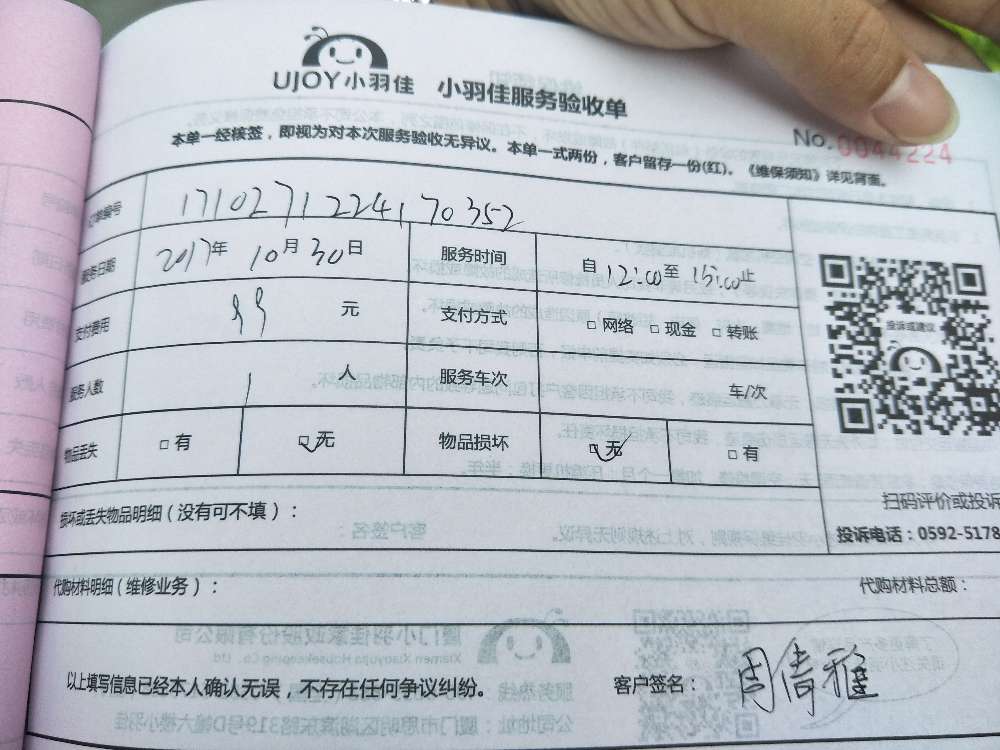 UJOY小羽佳 小羽佳服务验收单
No.0044224
本单一经核签，即视为对本次服务验收无异议。本单一式两份，客户留存一份(红)。《维保须知》详见背面。
订单编号 1710271224170352
服务日期 2017年 10月 30日 服务时间 自 12:00 至 15:00 止
支付费用 99 元 支付方式 □ 网络 □ 现金 □ 转账
服务人数 1 人 服务车次 车/次
物品丢失 □ 有 □ 无 物品损坏 □ 无 □ 有
投诉或建议
扫码评价或投诉
投诉电话：0592-5178
损坏或丢失物品明细（没有可不填）：
代购材料明细（维修业务）： 代购材料总额：
以上填写信息已经本人确认无误，不存在任何争议纠纷。 客户签名： 周倩雅